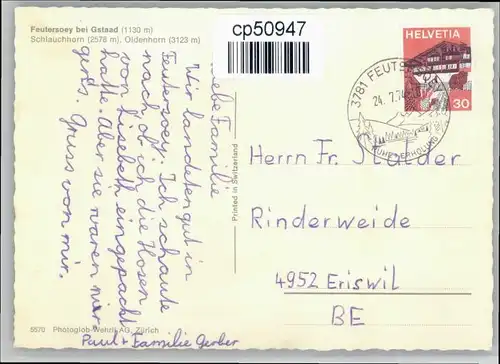 Feutersoey bei Gstaad (1130 m)
Schlauchhorn (2578 m), Oldenhorn (3123 m)
cp50947
HELVETIA
30
3781 FEUTERSOEY
24.7.74
RUHE + ERHOLUNG
Liebe Familie
Wir landeten gut in
Feutersoey. Ich schaute
nach, ob ich die Hosen
von Lisebeth eingepackt
hatte. Aber sie waren nirgends. Gruss von mir.
Paul + Familie Gerber
Printed in Switzerland
Herrn Fr. Stalder
Rinderweide
4952 Eriswil
BE
5570 Photoglob-Wehrli AG, Zürich